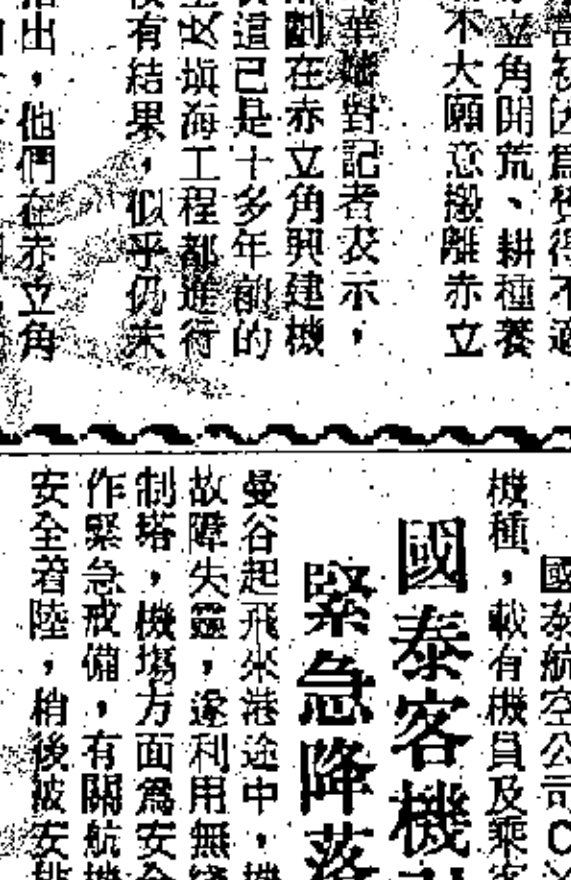 當初因為覺得不適
立角開荒、耕種養
不大願意搬離赤立
華嬸對記者表示，
劃在赤立角興建機
這已是十多年前的
及填海工程都進行
有結果，似乎仍未
出，他們在赤立角
國泰航空公司
機種，載有機員及乘客
國泰客機
緊急降落
曼谷起飛來港途中，機
故障失靈，遂利用無綫
制塔，機塲方面爲安全
作緊急戒備，有關航機
安全着陸，稍後被安排